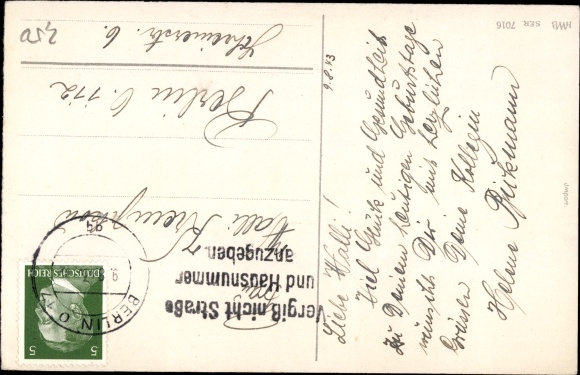 HWB SER. 7016
9.8.43
Liebe Walli!
Viel Glück und Gesundheit
zu Deinem heutigen Geburtstage
wünscht Dir mit herzlichen
Grüssen Deine Kollegin
Helene
Import.
DEUTSCHES REICH
5 5
BERLIN O 17
9.
Vergiß nicht Straße
und Hausnummer
anzugeben.
Walli
Berlin O. 112
Schreinerstr. 6.
2,50